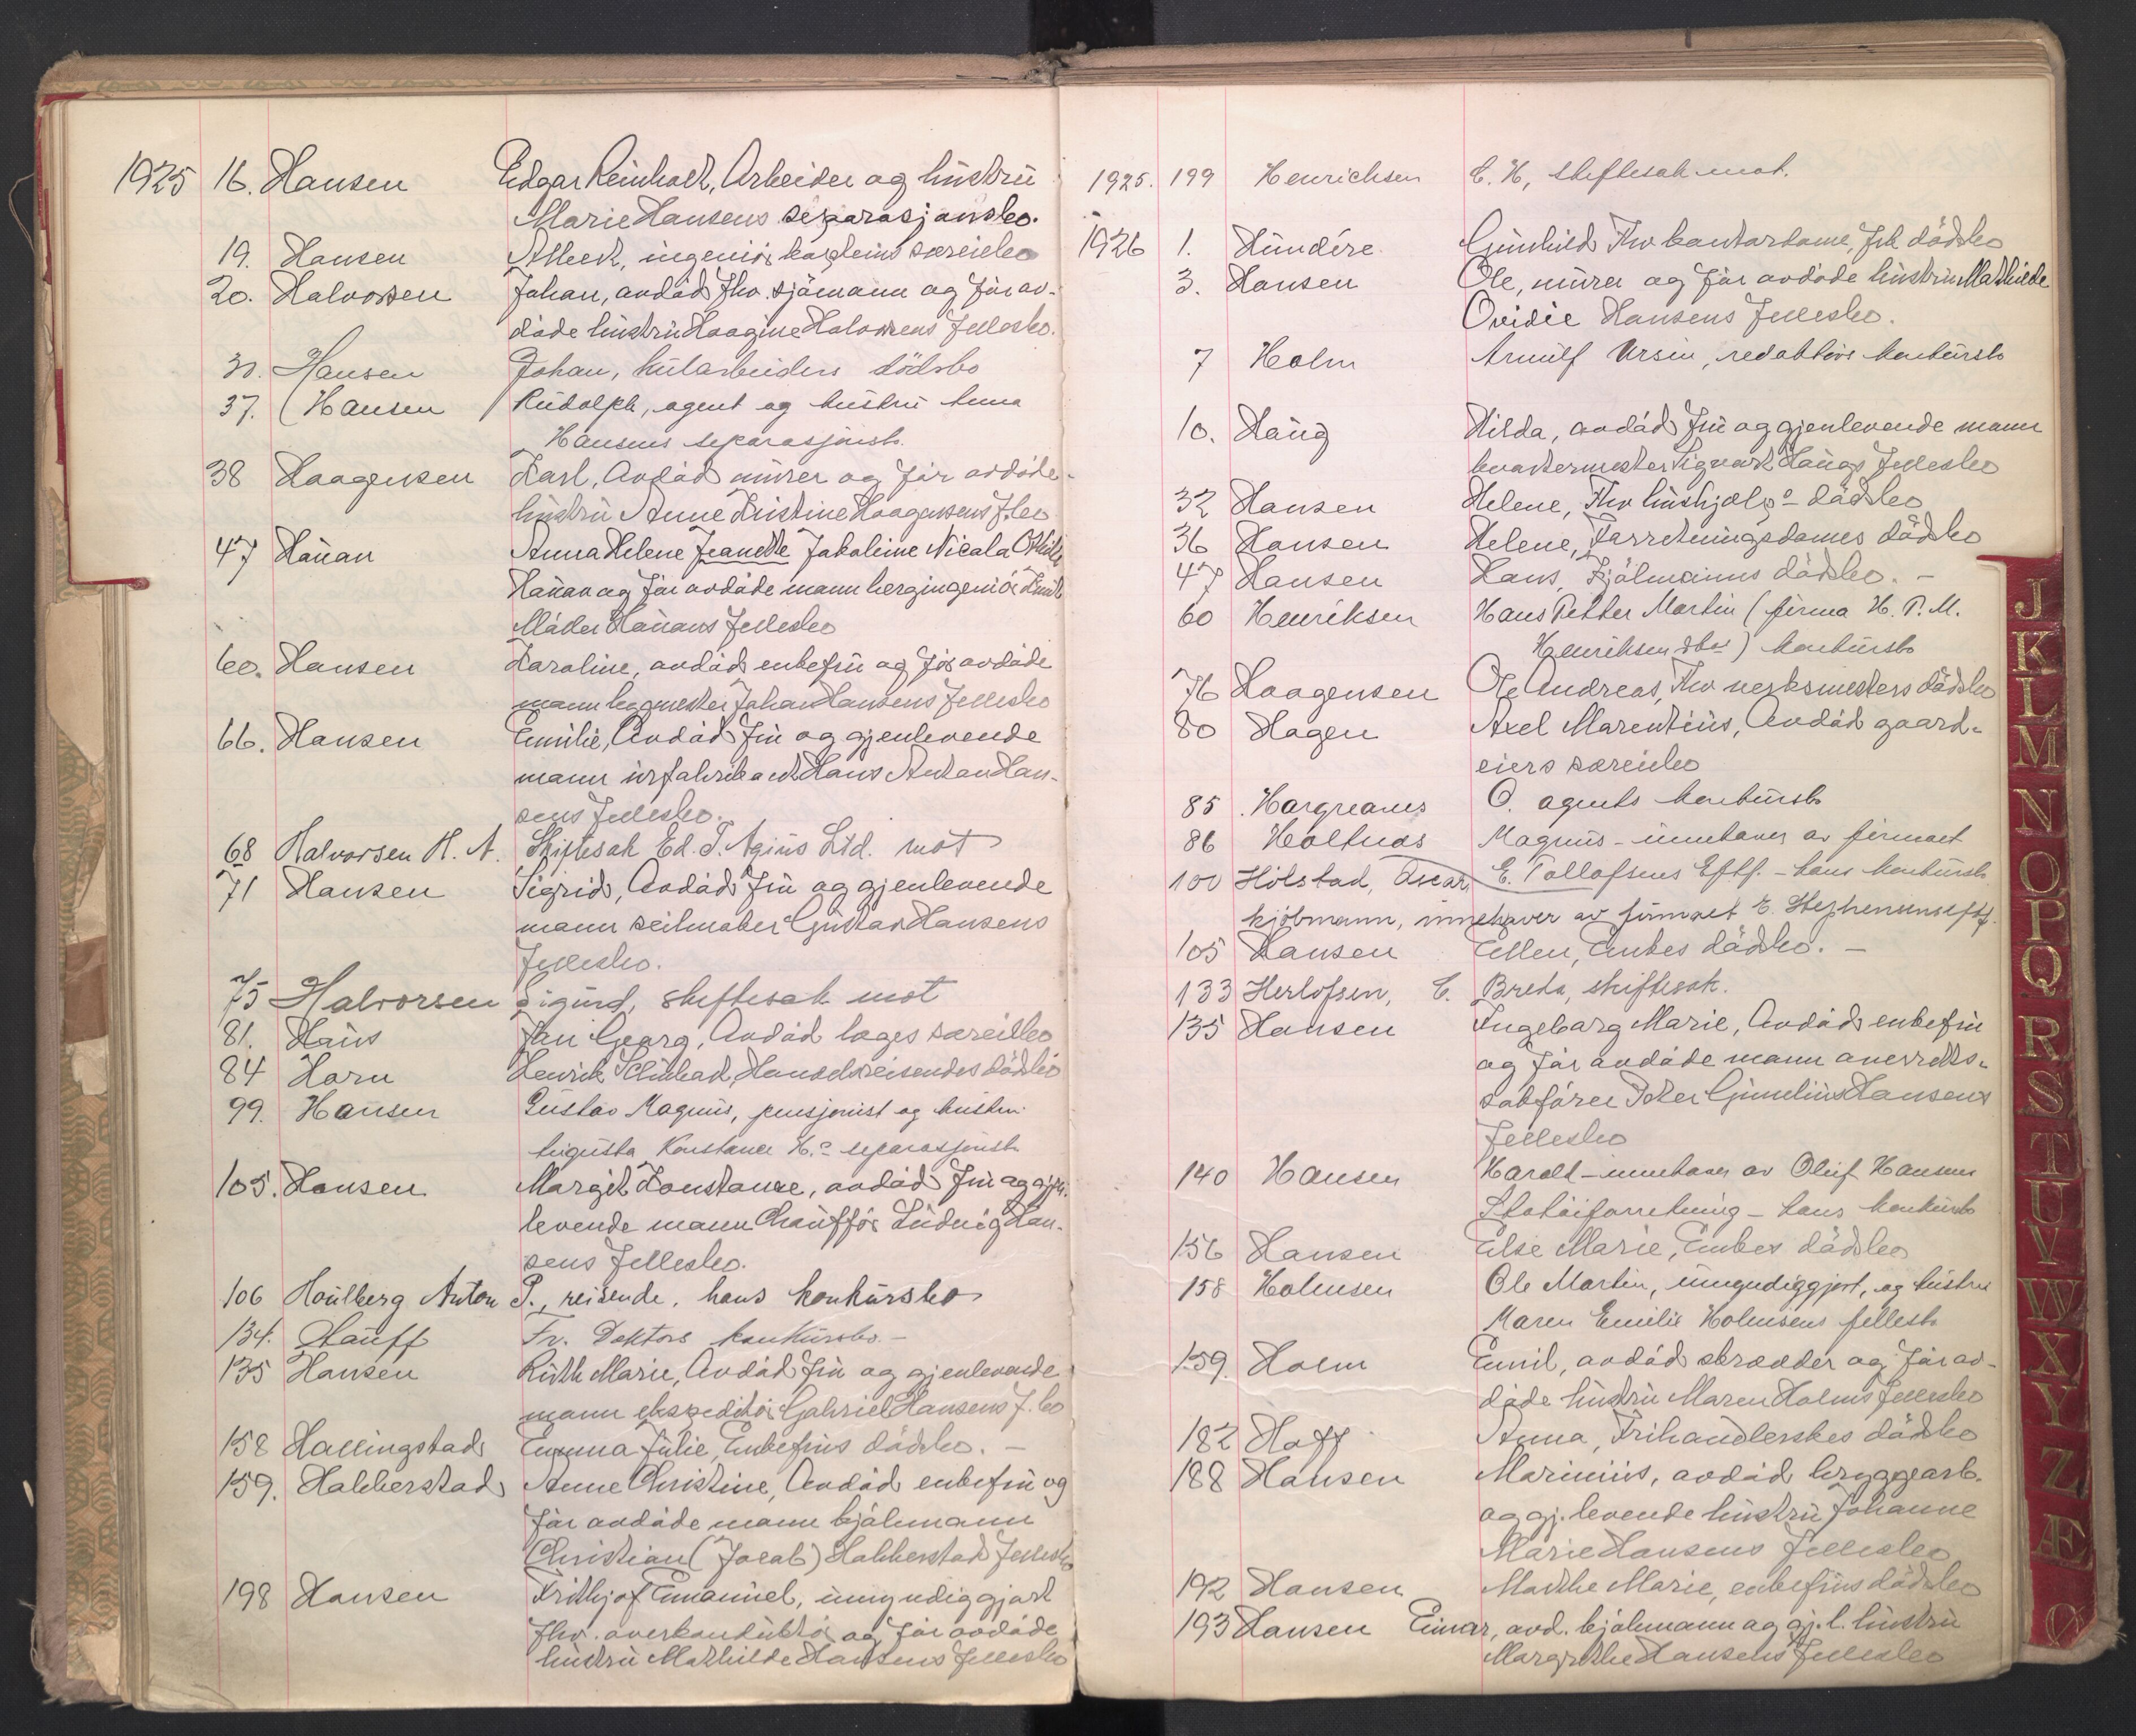 1925 16. Hansen Edgar Reinholt, Arbeider og hustru
Marie Hansens separasjonsbo.
19. Hansen Albert, ingeniør kapteins særeiebo
20. Halvorsen Johan, avdød fhv. sjömann og før av-
døde hustru Haagine Halvorsens fellesbo.
31. Hansen Johan, kularbeiders dödsbo
37. Hansen Rudolph, agent og hustru Anna
Hansens separasjonsb.
38 Haagensen Karl, Avdød murer og før avdøde
hustru Anne Kristine Haagensens f.bo
47 Hanan Anna Helene Jeanette Jakobine Nicola Otilie
Hanan og før avdøde mann bergingeniør Emil
Møller Hanans fellesbo
60. Hansen Karoline, avdød enkefru og før avdøde
mann bygmester Johan Hansens fellesbo
66. Hansen Emilie, Avdød fru og gjenlevende
mann urfabrikant Hans Anton Han-
sens fellesbo.
68 Halvorsen H. A. Skiftesak Ed. T. Agius Ltd. mot
71 Hansen Sigrid, Avdød fru og gjenlevende
mann seilmaker Gustav Hansens
fellesbo.
75 Halvorsen Sigurd, skiftesak mot
81. Haus Jan Georg, Avdød læges særeiebo
84 Horn Henrik Schubart, Handelsreisendes dødsbo
99. Hansen Gustav Magnus, pensjonist og hustru
Augusta Konstance H.s separasjonsb
105. Hansen Margit Konstance, avdød fru og gjen-
levende mann Chauffør Ludvig Han-
sens fellesbo.
106 Houlberg Anton P., reisende, hans konkursbo
134. Hauff Fr. Doktors konkursbo. –
135 Hansen Ruth Marie, Avdød fru og gjenlevende
mann ekspeditør Gabriel Hansens f.bo
158 Hallingstad Emma Julie, Enkefrus dødsbo. –
159. Halberstad Anne Christine, Avdød enkefru og
før avdøde mann kjøbmann
Christian (Jocab) Halberstads fellesbo
198 Hansen Frithjof Emanuel, umyndiggjort
fhv. overkonduktør og før avdøde
hustru Mathilde Hansens fellesbo
1925. 199 Henrichsen C. H, skiftesak mot.
1926 1. Hundére Gunhild Fhv kontordame, frk dödsbo
3. Hansen Ole, murer og før avdøde hustru Mathilde
Ovidie Hansens fellesbo.
7 Holm Arnulf Ursin, redaktörs konkursb
10. Haug Hilda, avdød fru og gjenlevende mann
kvartermester Sigvart Haugs fellesbo
32 Hansen Helene, Fhv hushjælps dødsbo
36 Hansen Helene, Forretningsdames dødsbo
47 Hansen Hans, Kjölmanns dødsbo. –
60 Henriksen Hans Petter Martin (firma H. P. M.
Henriksen) konkursb
76 Haagensen Ole Andreas, Fhv verksmesters dødsbo
80 Hagen Axel Marentius, Avdød gaard-
eiers særeiebo
85 Hargreaves O. agents konkursb
86 Holtnæs Magnus – innehaver av firmaet
E. Tollofsens Eftf. – hans konkursb.
100 Holstad, Oscar
kjöbmann, innehaver av firmaet E. Stephensens eftf.
105 Hansen Ellen, Enkes dødsbo. –
133 Herlofsen, C. Breda, skiftesak.
135 Hansen Ingeborg Marie, Avdød enkefru
og før avdøde mann overretts-
sakfører Peter Gunelius Hansens
fellesbo
140 Hansen Harald – innehaver av Oluf Hansens
Skotöiforretning – hans konkursb
156 Hansen Else Marie, Enkes dødsbo
158 Holmsen Ole Martin, umyndiggjort, og hustru
Maren Emilie Holmsens fellesb
159. Holm Emil, avdød skrædder og før av-
døde hustru Maren Holms fellesbo
182 Hoff Anna, Frihandlerskes dødsbo
188 Hansen Marinius, avdød bryggearb.
og gj.levende hustru Johanne
Marie Hansens fellesbo
192 Hansen Marthe Marie, enkefrus dødsbo
193 Hansen Einar, avd. kjøbmann og gj.l. hustru
Margrethe Hansens fellesbo
J
K
L
M
N
O
P
Q
R
S
T
U
V
W
X
Y
Z
Æ
Ø